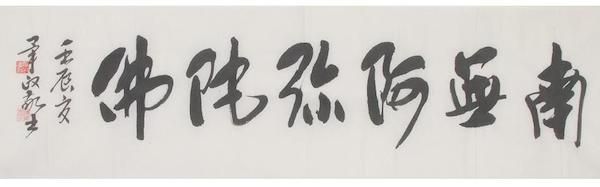 南無阿弥陀佛
壬辰夏